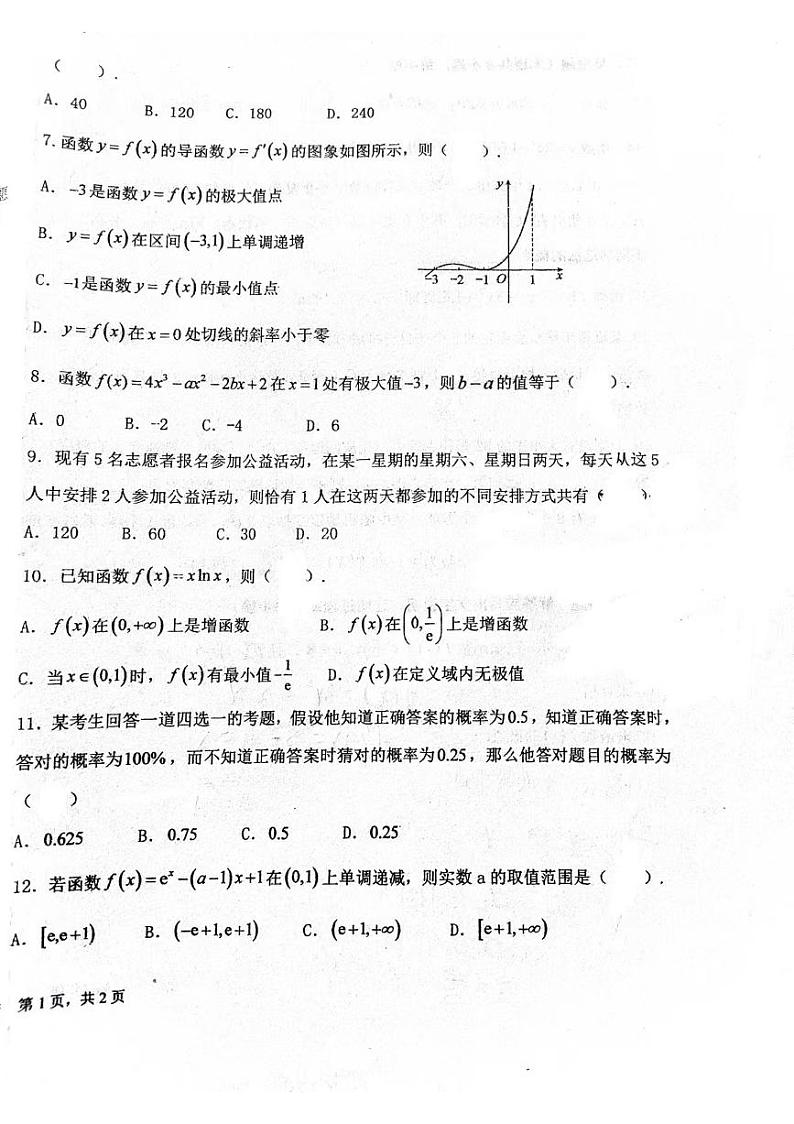 (      ).
A. 40    B. 120    C. 180    D. 240
7. 函数 y = f(x) 的导函数 y = f′(x) 的图象如图所示，则（    ）.
A. −3 是函数 y = f(x) 的极大值点
B. y = f(x) 在区间 (−3,1) 上单调递增
C. −1 是函数 y = f(x) 的最小值点
D. y = f(x) 在 x = 0 处切线的斜率小于零
y
-3 -2 -1 O 1 x
8. 函数 f(x) = 4x³ − ax² − 2bx + 2 在 x = 1 处有极大值 −3，则 b − a 的值等于（    ）.
A. 0    B. -2    C. -4    D. 6
9. 现有 5 名志愿者报名参加公益活动，在某一星期的星期六、星期日两天，每天从这 5
人中安排 2 人参加公益活动，则恰有 1 人在这两天都参加的不同安排方式共有（    ）.
A. 120    B. 60    C. 30    D. 20
10. 已知函数 f(x) = x ln x，则（    ）.
A. f(x) 在 (0,+∞) 上是增函数    B. f(x) 在 (0, 1/e) 上是增函数
C. 当 x∈(0,1) 时， f(x) 有最小值 −1/e    D. f(x) 在定义域内无极值
11. 某考生回答一道四选一的考题，假设他知道正确答案的概率为 0.5，知道正确答案时，
答对的概率为 100%，而不知道正确答案时猜对的概率为 0.25，那么他答对题目的概率为
（    ）
A. 0.625    B. 0.75    C. 0.5    D. 0.25
12. 若函数 f(x) = eˣ − (a−1)x + 1 在 (0,1) 上单调递减，则实数 a 的取值范围是（    ）.
A. [e,e+1)    B. (−e+1,e+1)    C. (e+1,+∞)    D. [e+1,+∞)
第 1 页，共 2 页